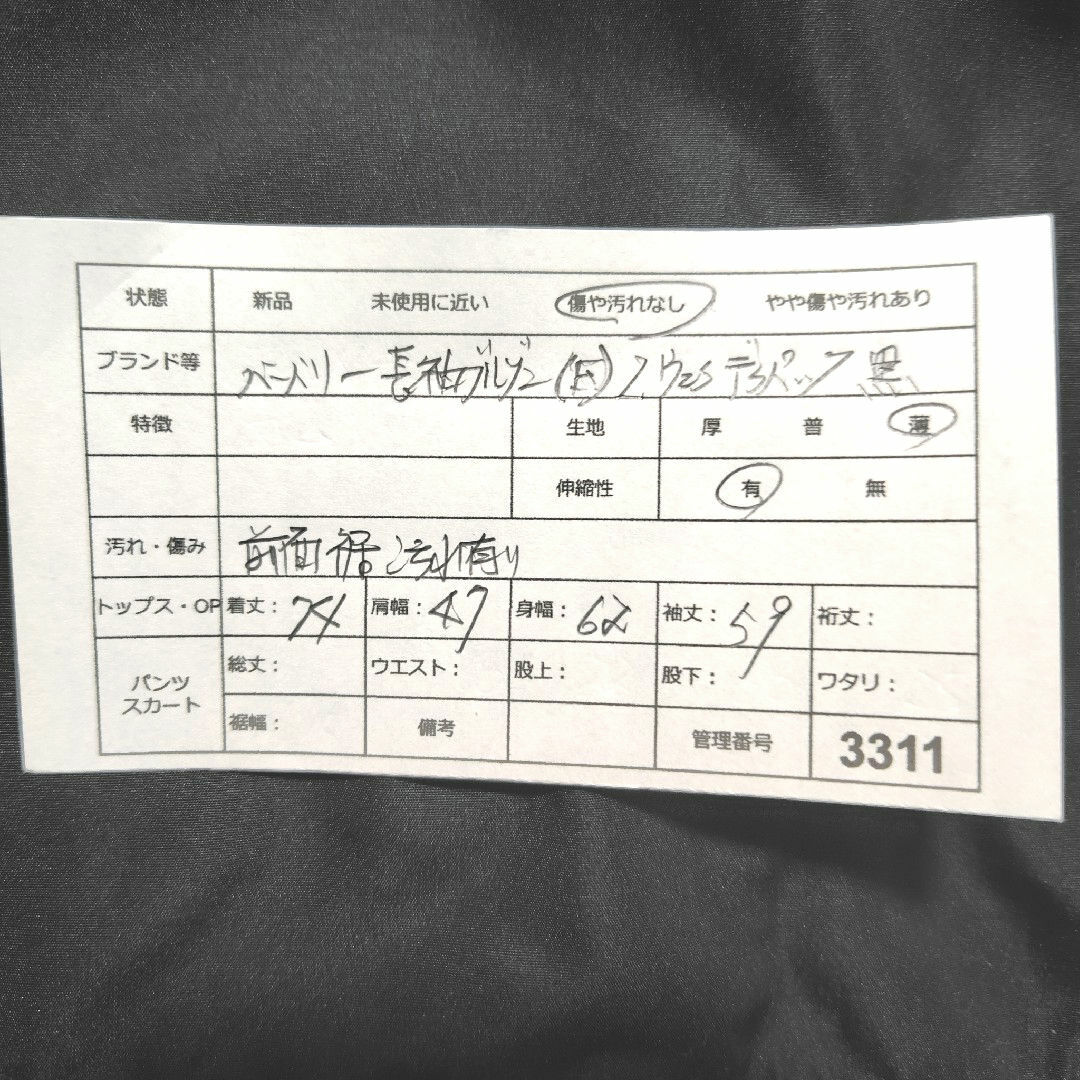 状態 新品 未使用に近い 傷や汚れなし やや傷や汚れあり
ブランド等 バーバリー長袖ブルゾン 黒
特徴 生地 厚 普 薄
伸縮性 有 無
汚れ・傷み 前面裾汚れ有り
トップス・OP 着丈: 74 肩幅: 47 身幅: 62 袖丈: 59 裄丈:
パンツ スカート 総丈: ウエスト: 股上: 股下: ワタリ:
裾幅: 備考 管理番号 3311